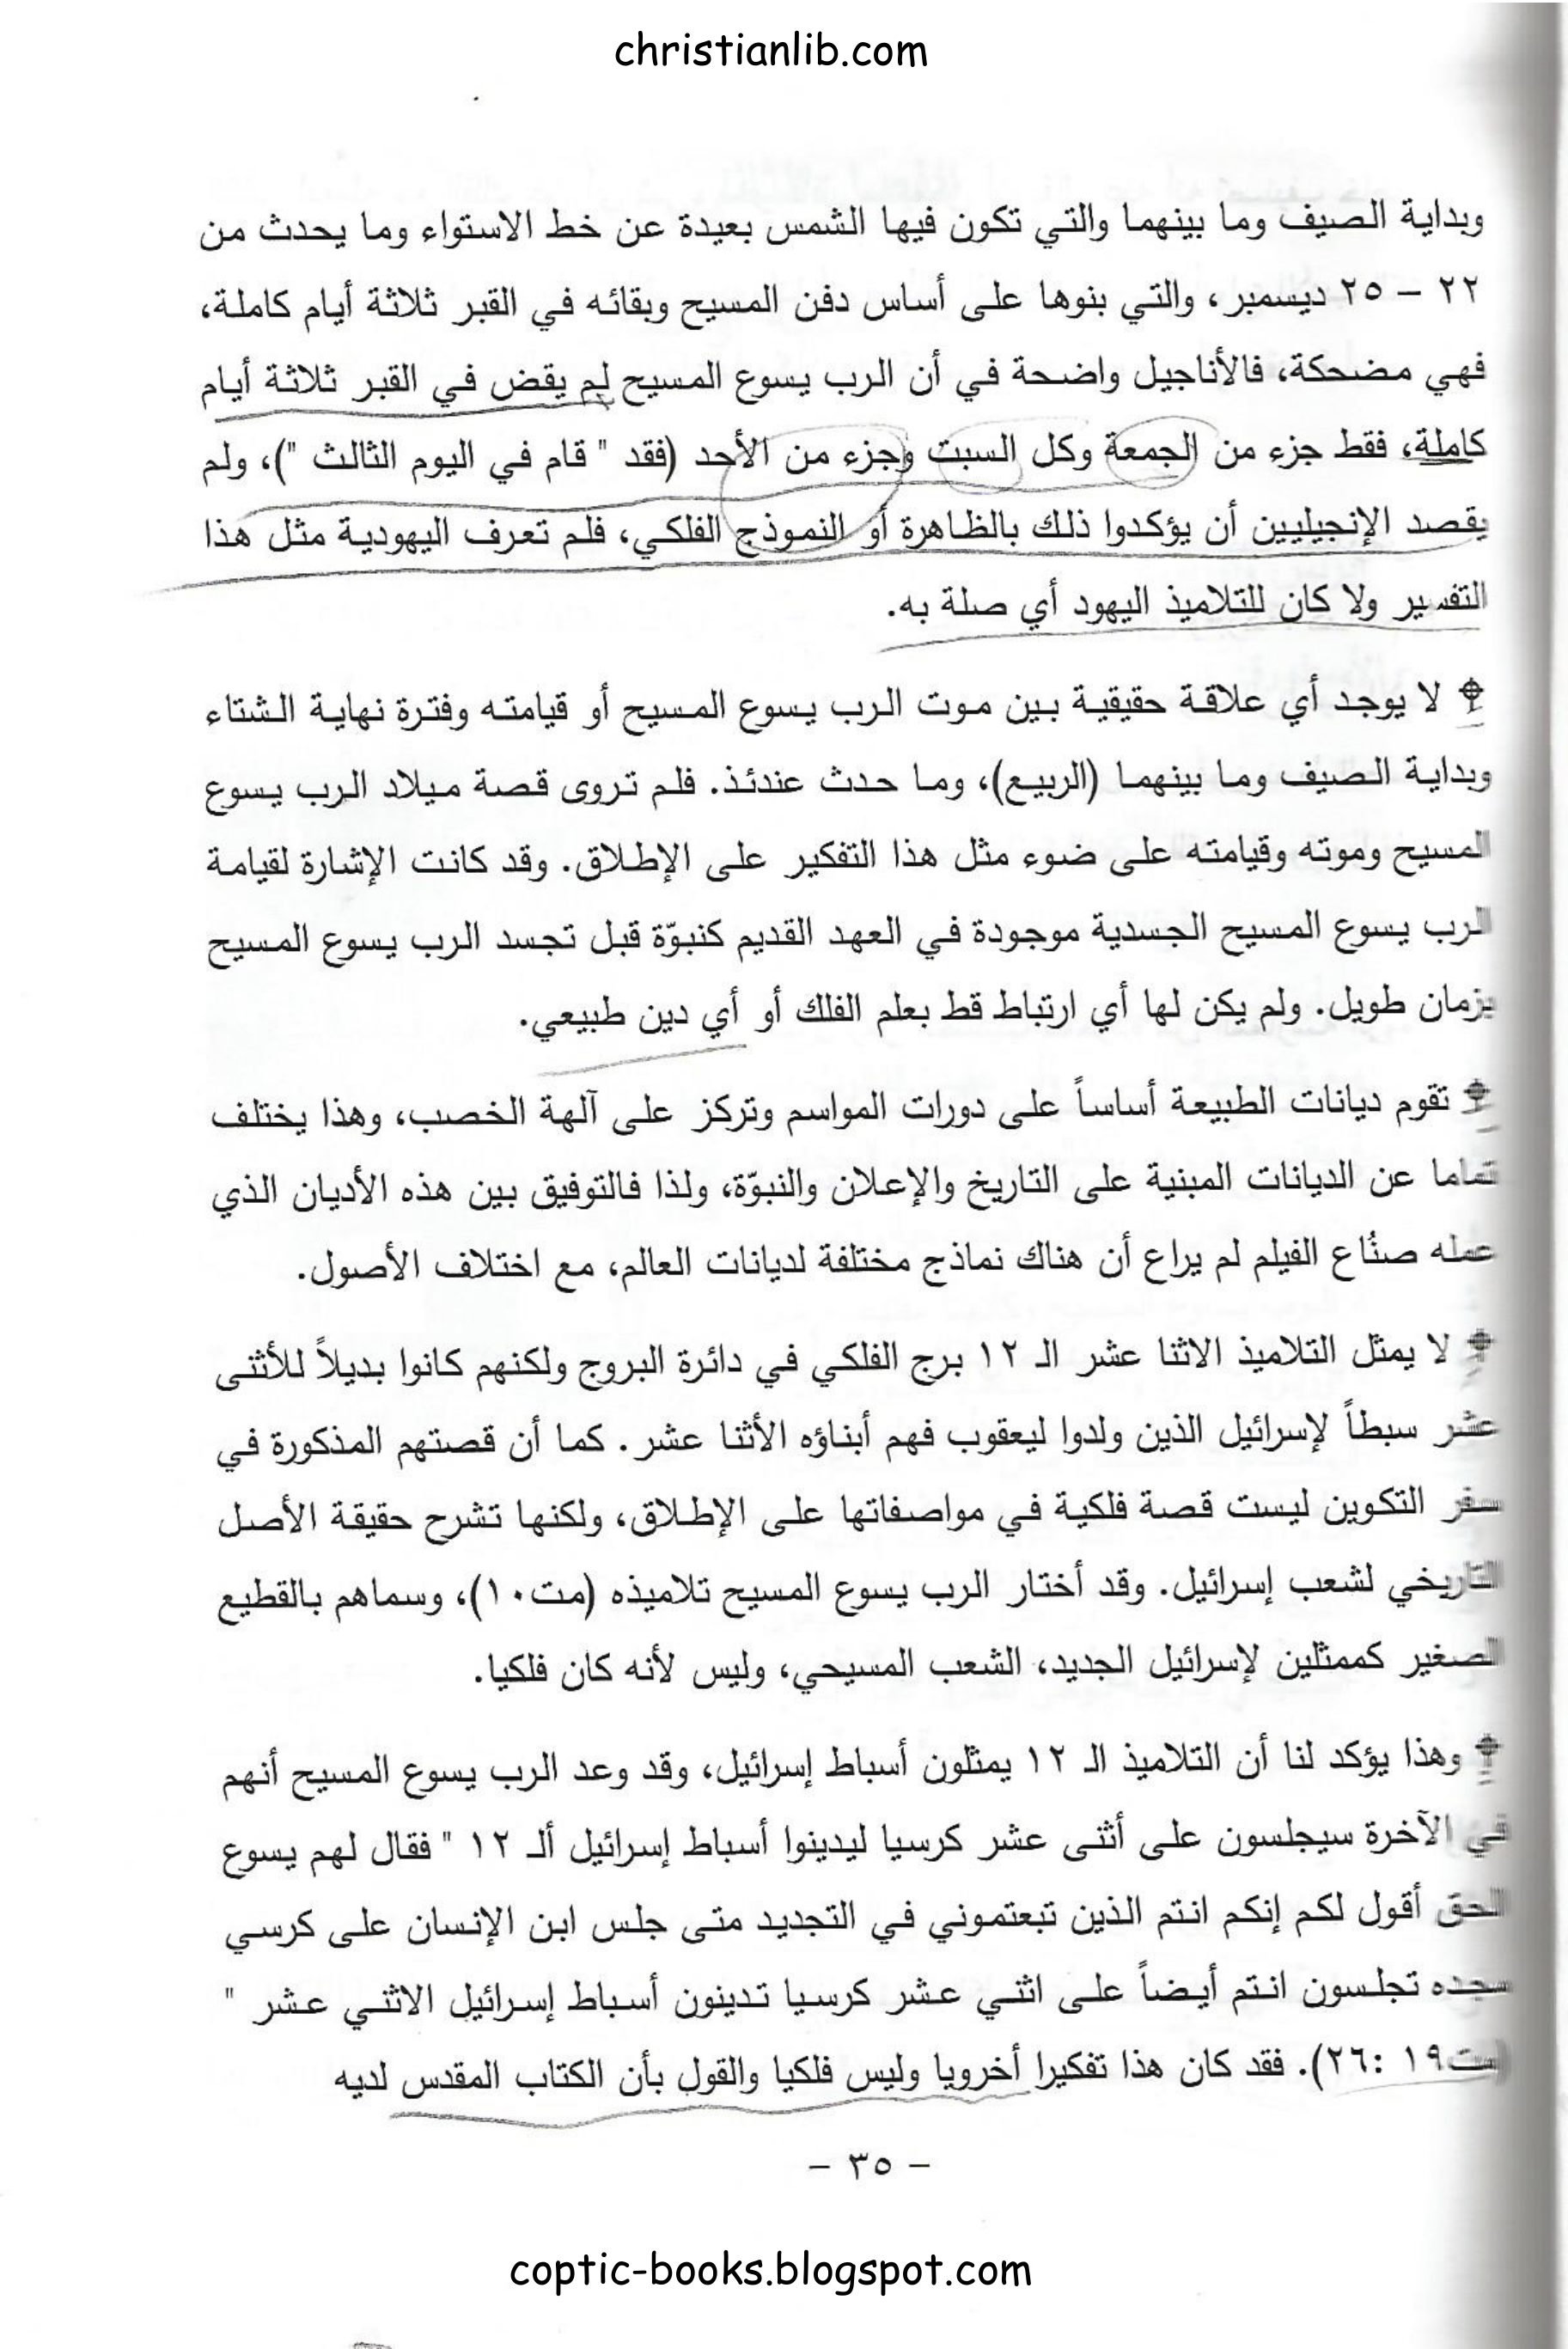 christianlib.com
وبداية الصيف وما بينهما والتي تكون فيها الشمس بعيدة عن خط الاستواء وما يحدث من
٢٢ – ٢٥ ديسمبر، والتي بنوها على أساس دفن المسيح وبقائه في القبر ثلاثة أيام كاملة،
فهي مضحكة، فالأناجيل واضحة في أن الرب يسوع المسيح لم يقض في القبر ثلاثة أيام
كاملة، فقط جزء من الجمعة وكل السبت وجزء من الأحد (فقد " قام في اليوم الثالث ")، ولم
يقصد الإنجيليين أن يؤكدوا ذلك بالظاهرة أو النموذج الفلكي، فلم تعرف اليهودية مثل هذا
التفسير ولا كان للتلاميذ اليهود أي صلة به.
لا يوجد أي علاقة حقيقية بين موت الرب يسوع المسيح أو قيامته وفترة نهاية الشتاء
وبداية الصيف وما بينهما (الربيع)، وما حدث عندئذ. فلم تروى قصة ميلاد الرب يسوع
المسيح وموته وقيامته على ضوء مثل هذا التفكير على الإطلاق. وقد كانت الإشارة لقيامة
الرب يسوع المسيح الجسدية موجودة في العهد القديم كنبوّة قبل تجسد الرب يسوع المسيح
بزمان طويل. ولم يكن لها أي ارتباط قط بعلم الفلك أو أي دين طبيعي.
تقوم ديانات الطبيعة أساساً على دورات المواسم وتركز على آلهة الخصب، وهذا يختلف
تماما عن الديانات المبنية على التاريخ والإعلان والنبوّة، ولذا فالتوفيق بين هذه الأديان الذي
عمله صنُاع الفيلم لم يراع أن هناك نماذج مختلفة لديانات العالم، مع اختلاف الأصول.
لا يمثل التلاميذ الاثنا عشر الـ ١٢ برج الفلكي في دائرة البروج ولكنهم كانوا بديلاً للأثنى
عشر سبطاً لإسرائيل الذين ولدوا ليعقوب فهم أبناؤه الأثنا عشر. كما أن قصتهم المذكورة في
سفر التكوين ليست قصة فلكية في مواصفاتها على الإطلاق، ولكنها تشرح حقيقة الأصل
التاريخي لشعب إسرائيل. وقد أختار الرب يسوع المسيح تلاميذه (مت١٠)، وسماهم بالقطيع
الصغير كممثلين لإسرائيل الجديد، الشعب المسيحي، وليس لأنه كان فلكيا.
وهذا يؤكد لنا أن التلاميذ الـ ١٢ يمثلون أسباط إسرائيل، وقد وعد الرب يسوع المسيح أنهم
في الآخرة سيجلسون على أثنى عشر كرسيا ليدينوا أسباط إسرائيل ألـ ١٢ " فقال لهم يسوع
الحق أقول لكم إنكم انتم الذين تبعتموني في التجديد متى جلس ابن الإنسان على كرسي
مجده تجلسون انتم أيضاً على اثني عشر كرسيا تدينون أسباط إسرائيل الاثني عشر "
(مت١٩ :٢٦). فقد كان هذا تفكيرا أخرويا وليس فلكيا والقول بأن الكتاب المقدس لديه
– ٣٥ –
coptic-books.blogspot.com